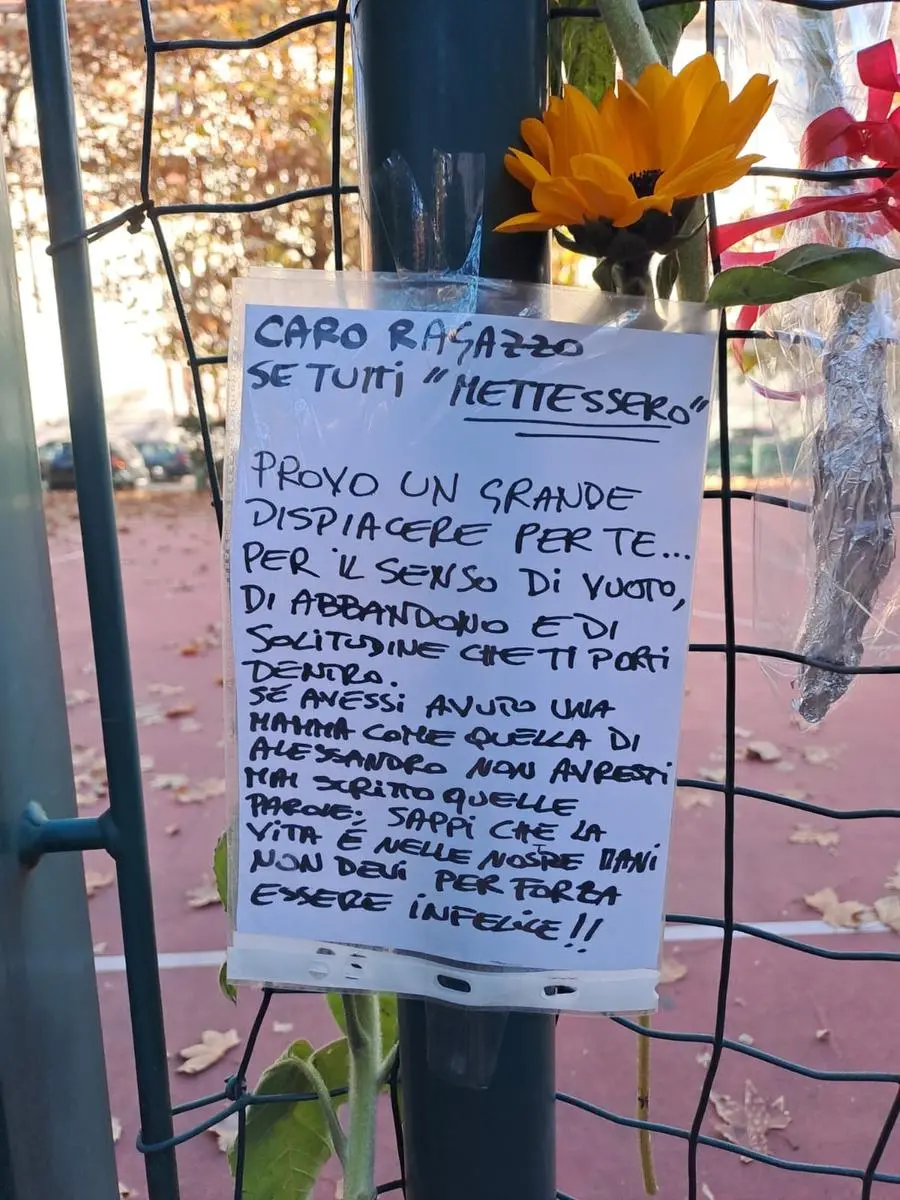 CARO RAGAZZO
SE TUTTI "METTESSERO"
PROVO UN GRANDE
DISPIACERE PER TE...
PER IL SENSO DI VUOTO,
DI ABBANDONO E DI
SOLITUDINE CHE TI PORTI
DENTRO.
SE AVESSI AVUTO UNA
MAMMA COME QUELLA DI
ALESSANDRO NON AVRESTI
MAI SCRITTO QUELLE
PAROLE; SAPPI CHE LA
VITA È NELLE NOSTRE MANI
NON DEVI PER FORZA
ESSERE INFELICE!!